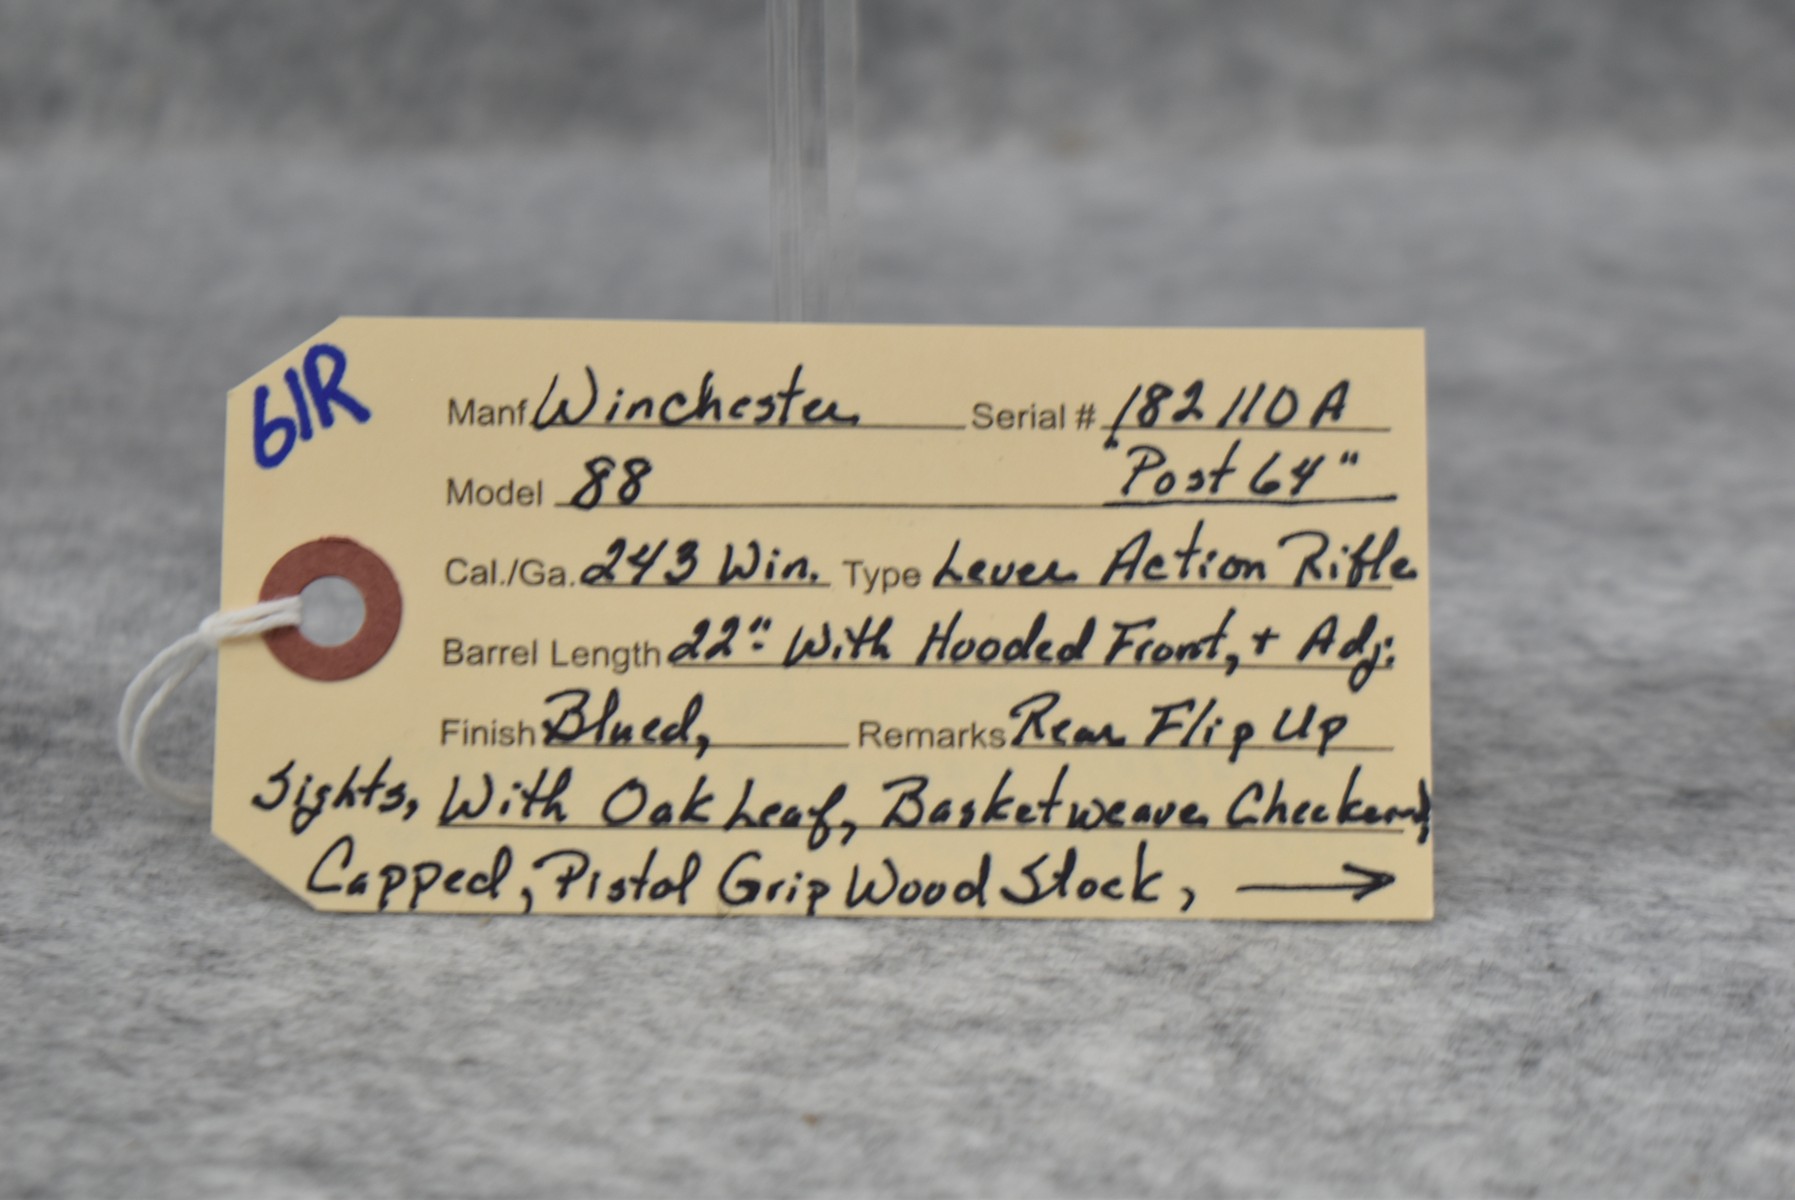 61R
Manf Winchester Serial # 182110A
Model 88 "Post 64"
Cal./Ga. 243 Win. Type Lever Action Rifle
Barrel Length 22": With Hooded Front, + Adj.
Finish Blued, Remarks Rear Flip Up
Sights, With Oak Leaf, Basketweave Checkered,
Capped, Pistol Grip Wood Stock, →